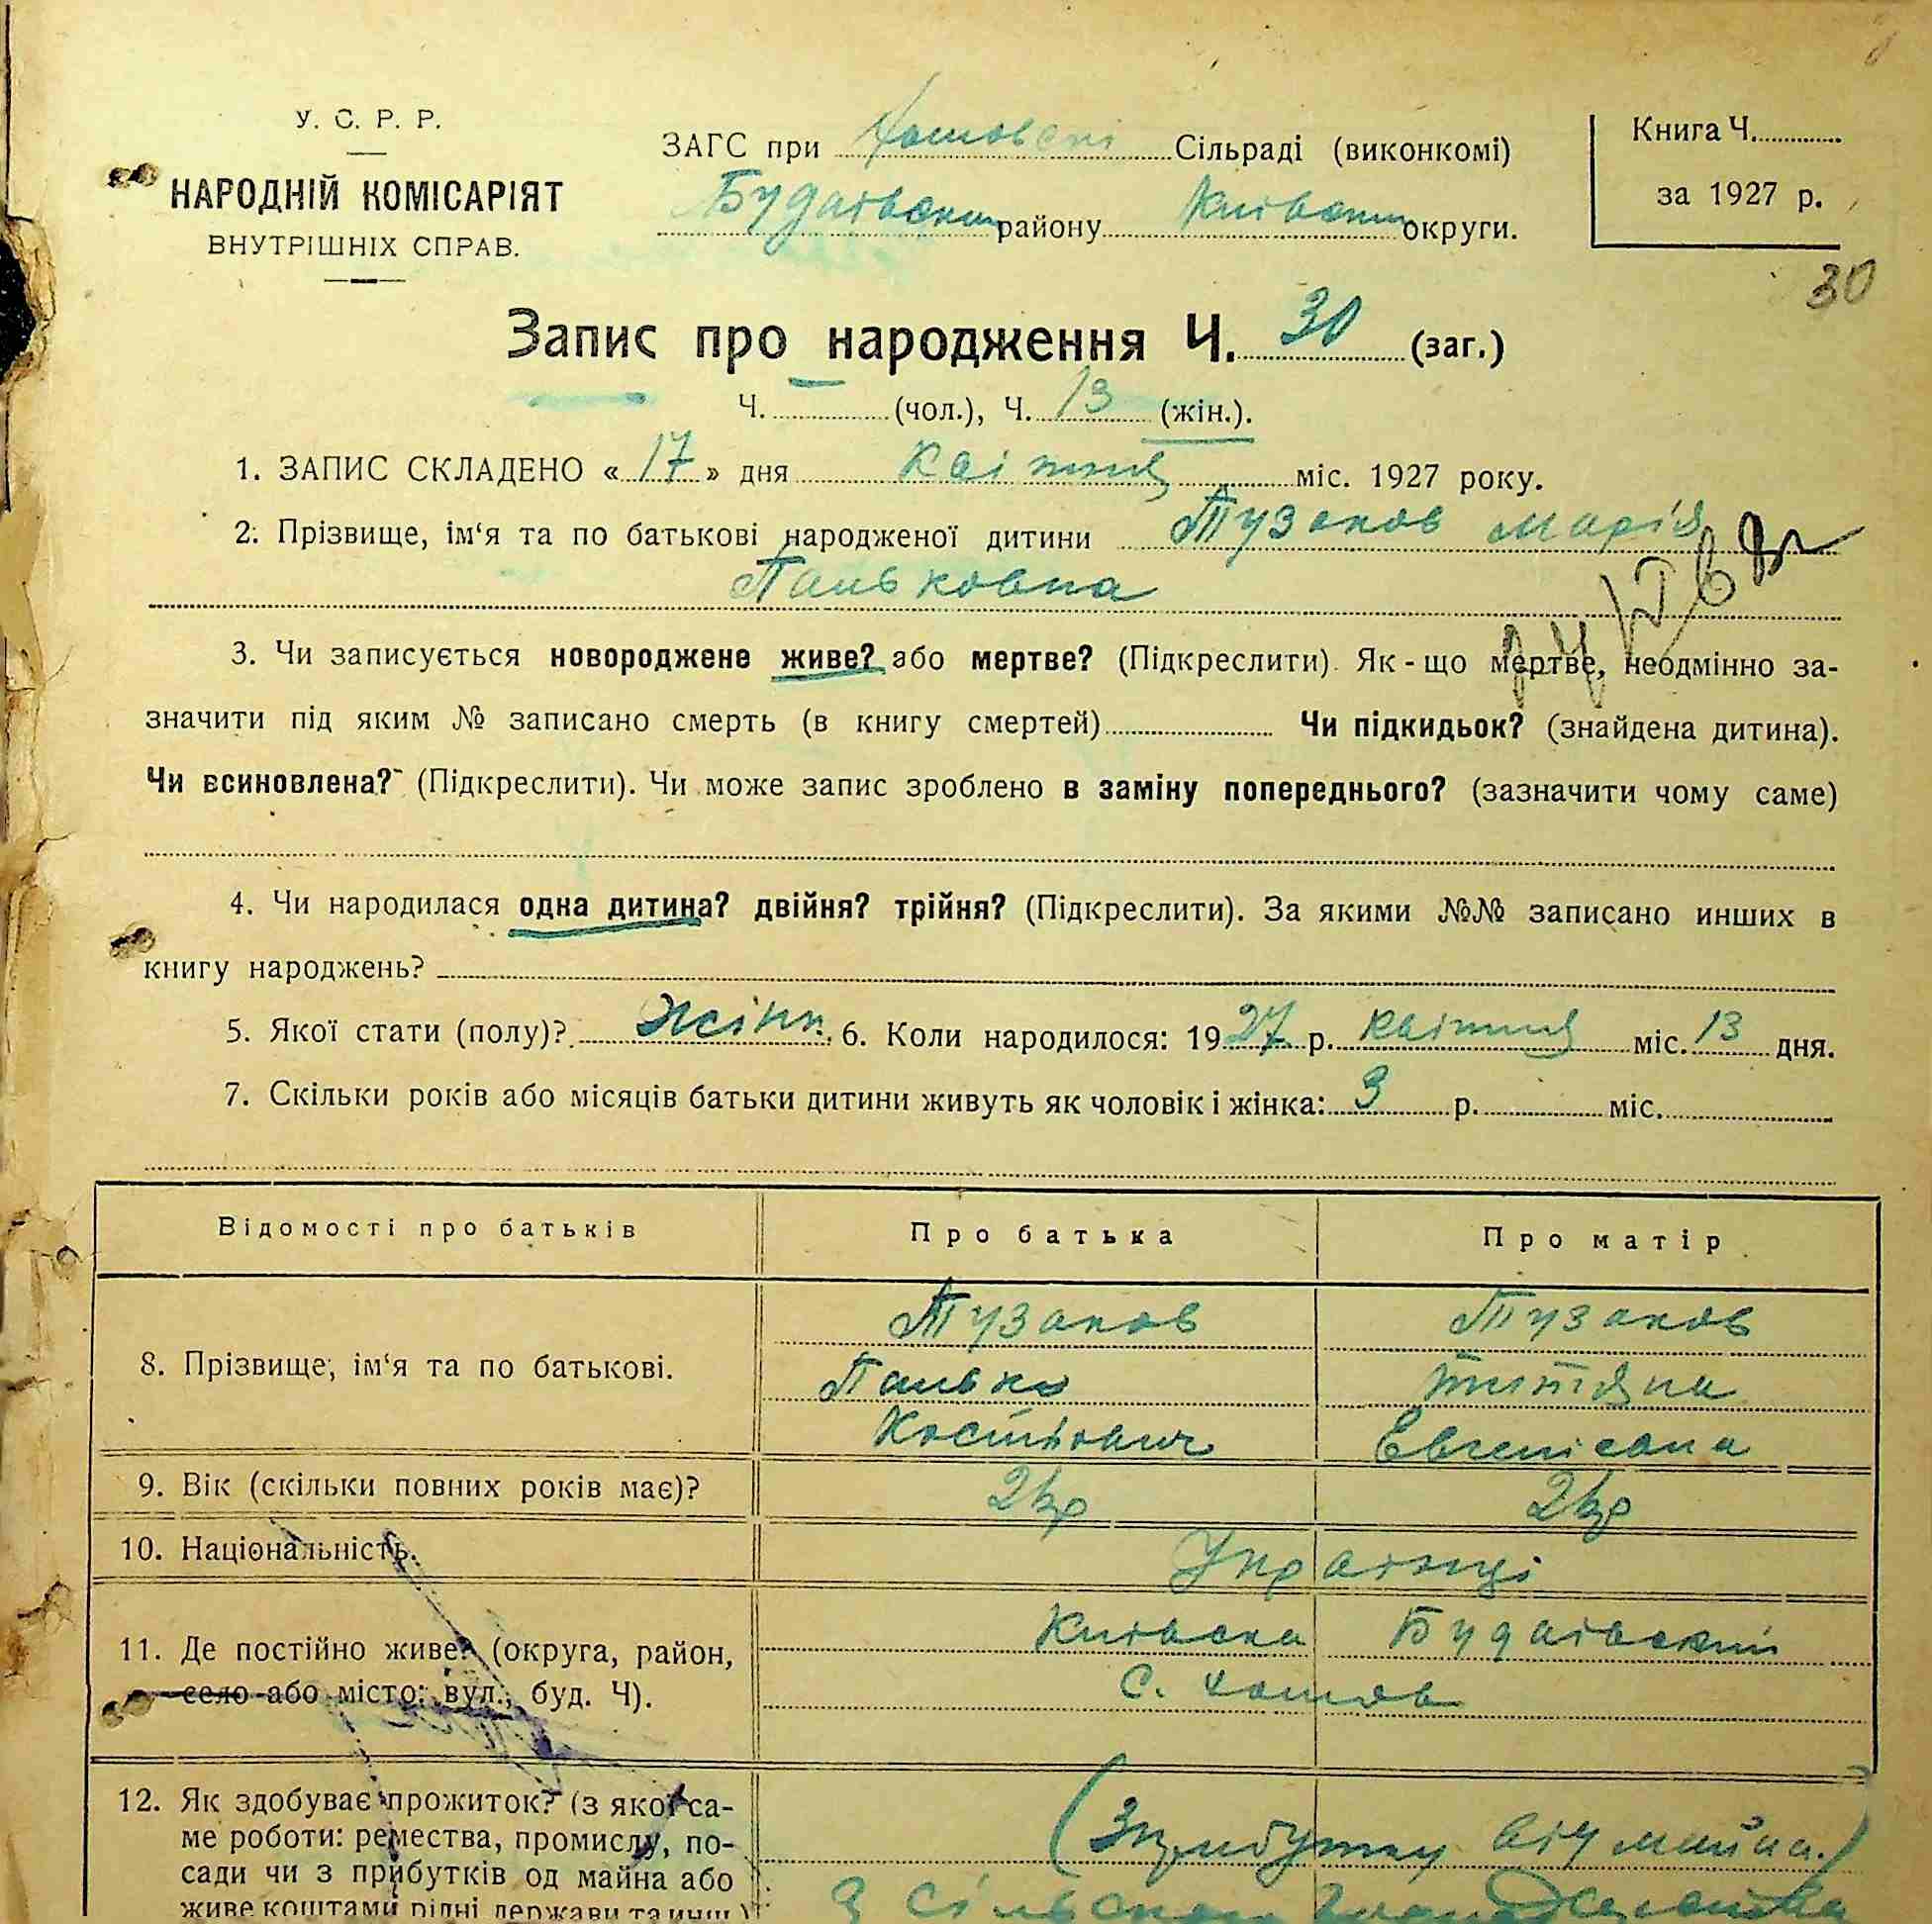 У. С. Р. Р.
НАРОДНІЙ КОМІСАРІЯТ
ВНУТРІШНІХ СПРАВ.
ЗАГС при Хотовскі Сільраді (виконкомі)
Будаївским району Київским округи.
Книга Ч.
за 1927 р.
30
Запис про народження Ч. 30 (заг.)
Ч. (чол.), Ч. 13 (жін.).
1. ЗАПИС СКЛАДЕНО «17» дня Квітня міс. 1927 року.
2. Прізвище, ім‘я та по батькові народженої дитини Тузаков Марія
Паньковна
3. Чи записується новороджене живе? або мертве? (Підкреслити). Як-що мертве, неодмінно за-
значити під яким № записано смерть (в книгу смертей) Чи підкидьок? (знайдена дитина).
Чи всиновлена? (Підкреслити). Чи може запис зроблено в заміну попереднього? (зазначити чому саме)
4. Чи народилася одна дитина? двійня? трійня? (Підкреслити). За якими №№ записано инших в
книгу народжень?
5. Якої стати (полу)? Жінк. 6. Коли народилося: 1927 р. Квітня міс. 13 дня.
7. Скільки років або місяців батьки дитини живуть як чоловік і жінка: 3 р. міс.
Відомості про батьків Про батька Про матір
8. Прізвище, ім‘я та по батькові.
Тузаков Тузаков
Панько Титяна
Костьович
9. Вік (скільки повних років має)?
10. Національність. Українці
11. Де постійно живе? (округа, район,
село або місто: вул., буд. Ч).
Київска Будаївский
с. Хотов
12. Як здобуває прожиток? (з якої са-
ме роботи: ремества, промислу, по-
сади чи з прибутків од майна або
живе коштами рідні, держави та инш.)
(З прибутку від майна.)
З сільского